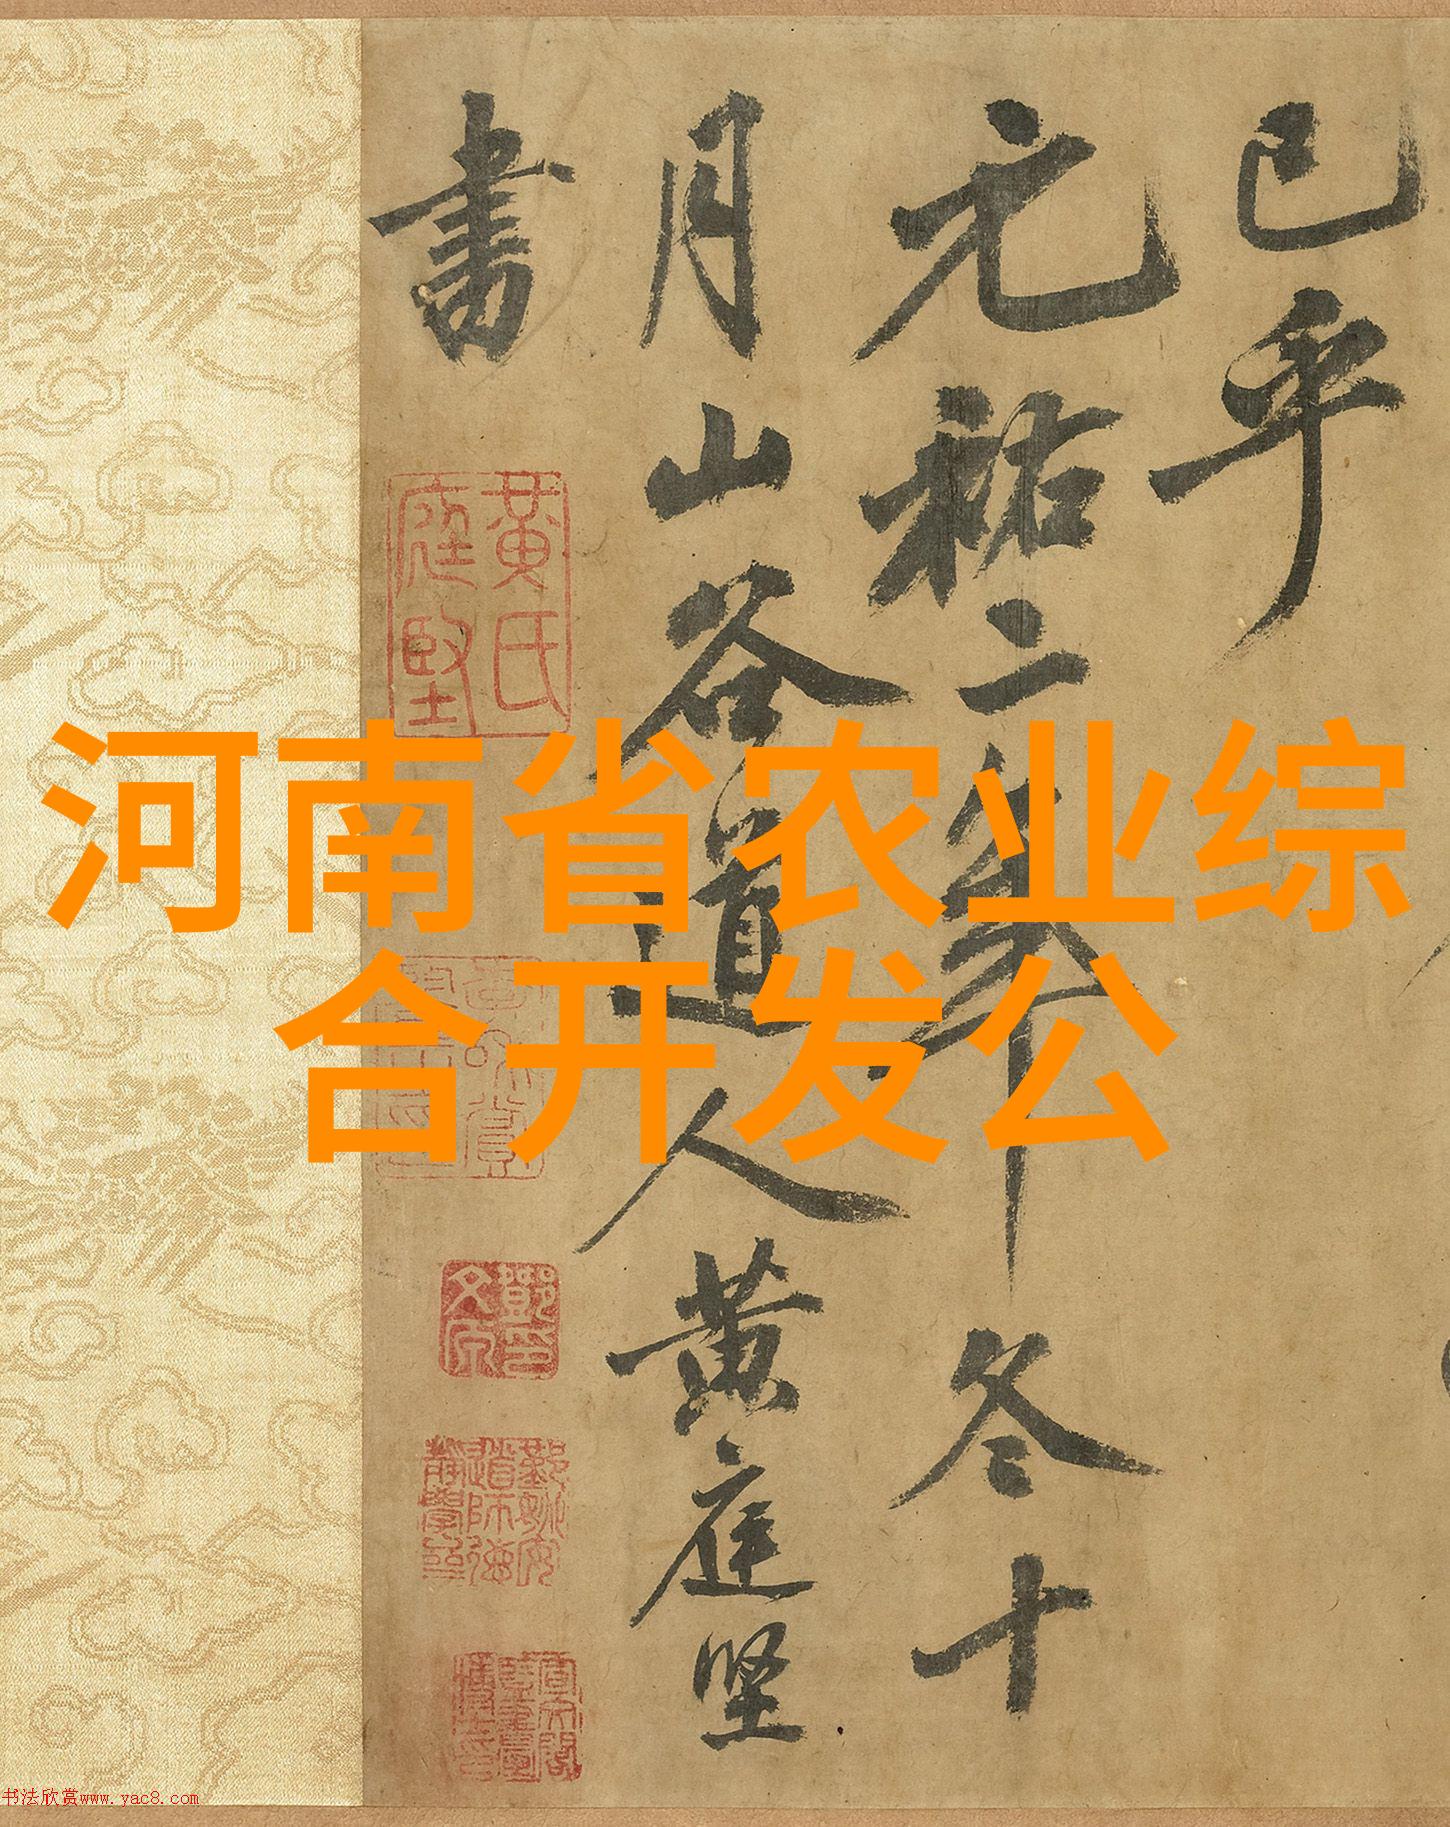 河南省农业综
合开发公
已乎
元祐二年冬十
月山谷道人黄庭坚
書
黄氏
庭堅
书法欣赏www.yac8.com